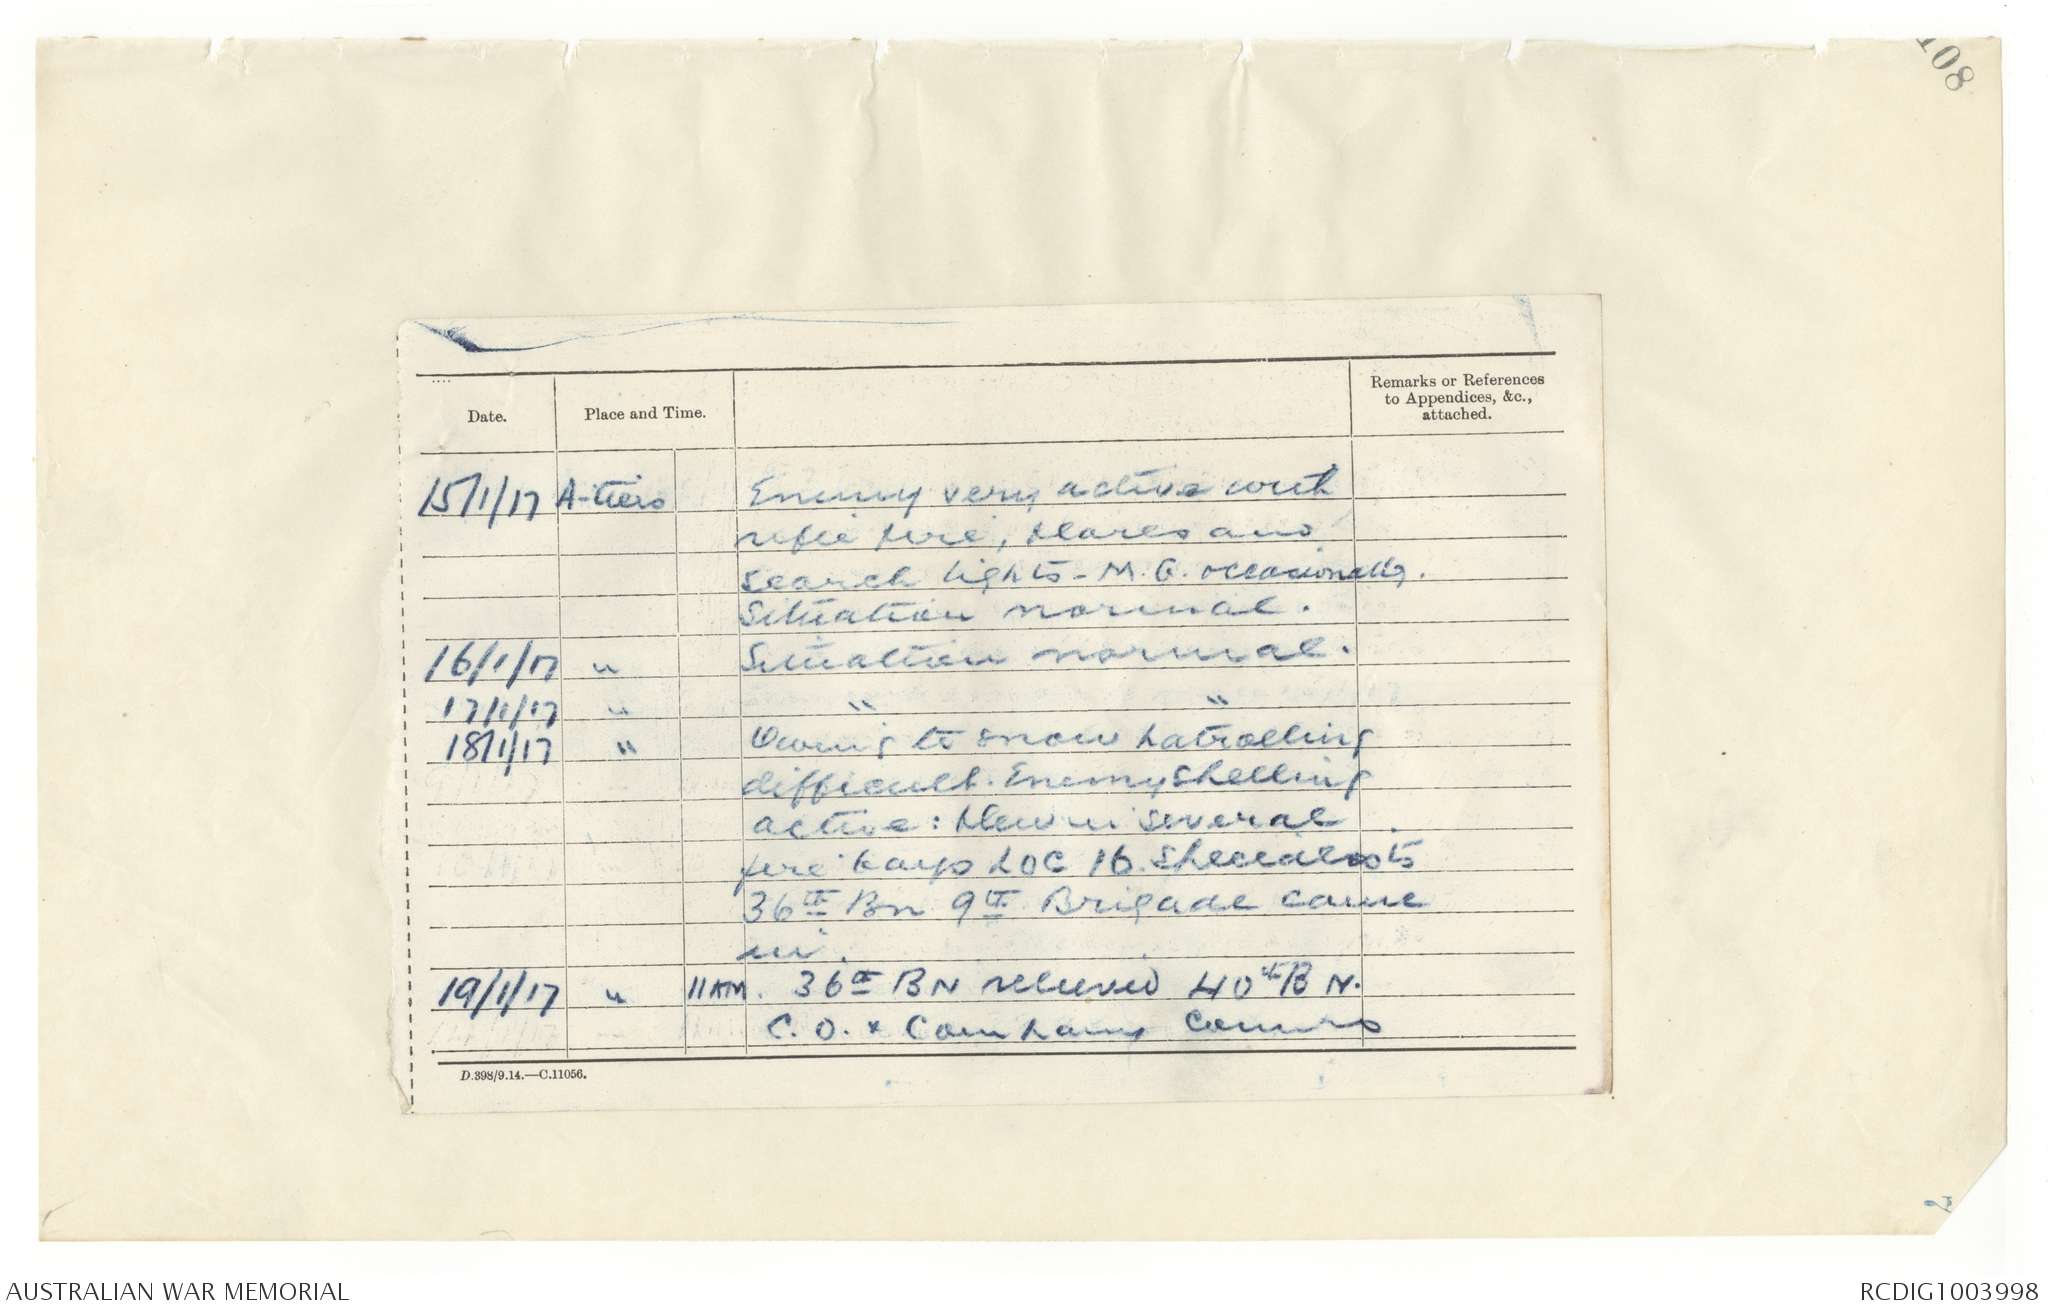 108
Date.
Place and Time.
Remarks or References
to Appendices, &c.,
attached.
15/1/17 A-tiers Enemy very active with
rifle fire, flares and
search lights - M.G. occasionally.
Situation normal.
16/1/17 " Situation normal.
17/1/17 " " "
18/1/17 " Owing to snow patrolling
difficult. Enemy shelling
active: blew in several
fire bays LOC 16. Specialists
36th Bn 9th Brigade came
in.
19/1/17 " 11 AM. 36th BN relieved 40th BN.
C.O. & Company Comrs
D.398/9.14.—C.11056.
AUSTRALIAN WAR MEMORIAL
RCDIG1003998